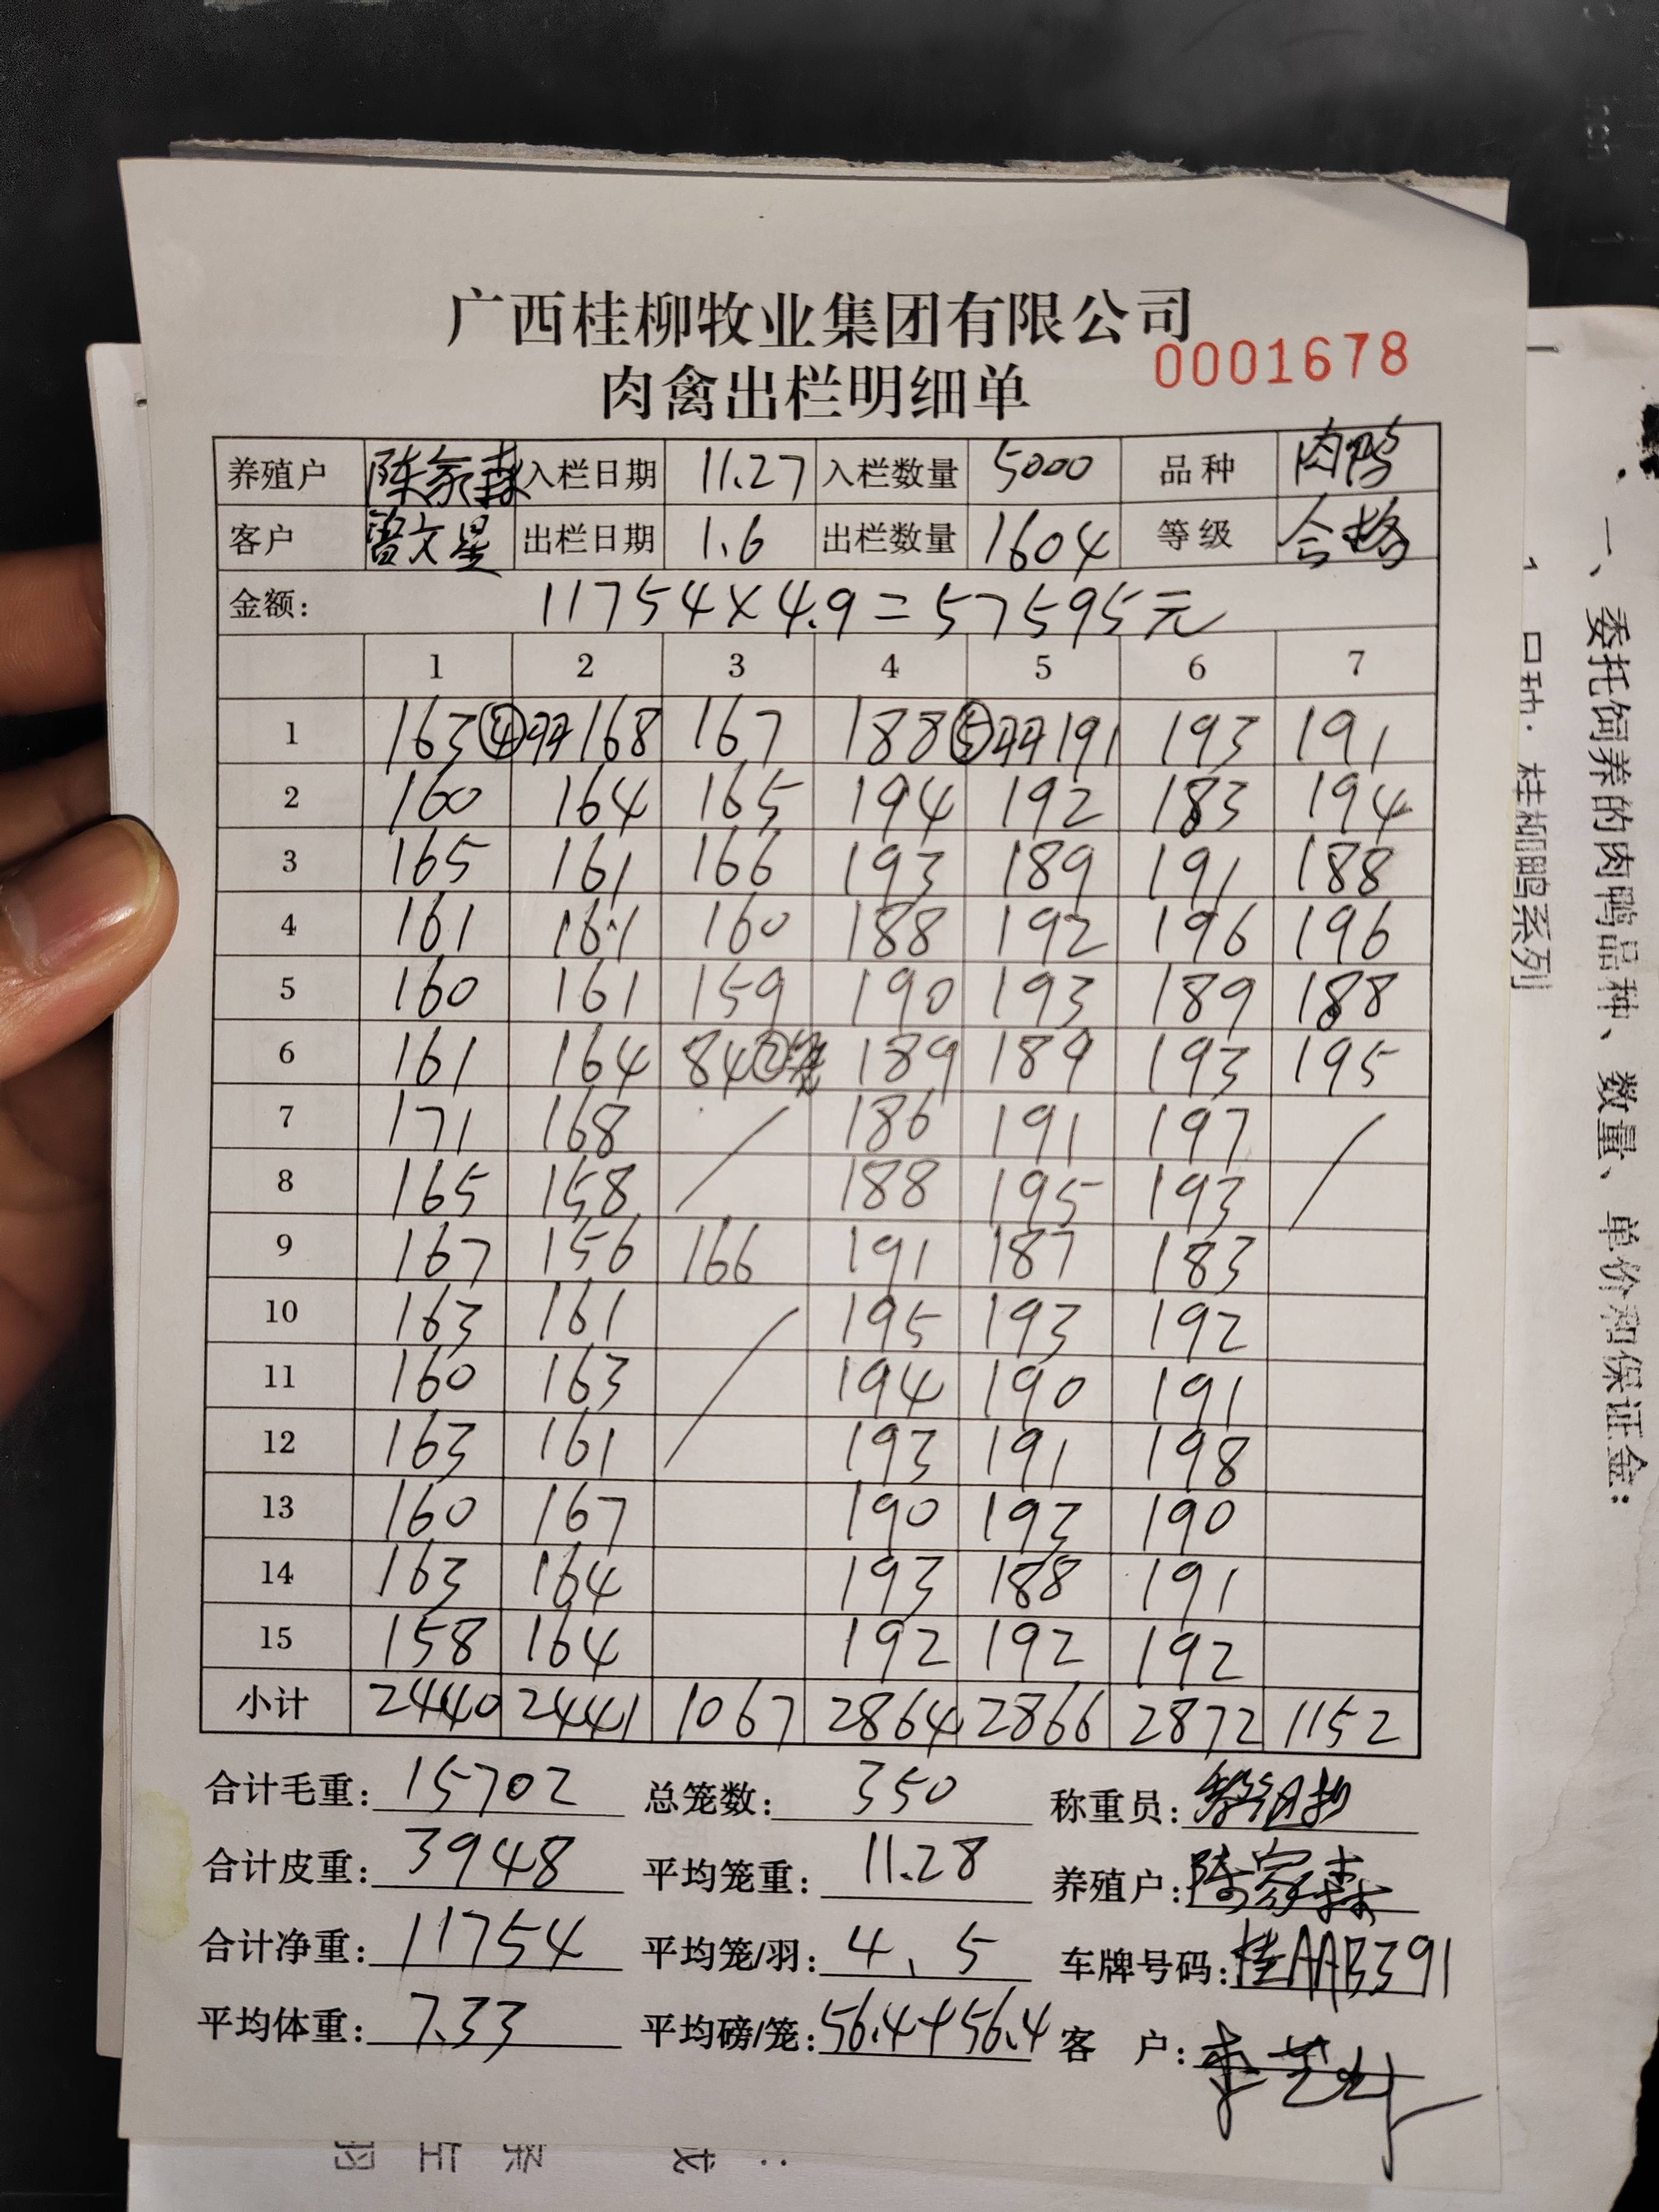 广西桂柳牧业集团有限公司
0001678
肉禽出栏明细单
养殖户 陈家森 入栏日期 11.27 入栏数量 5000 品种 肉鸭
客户 曾文星 出栏日期 1.6 出栏数量 1604 等级 合格
金额: 11754×4.9=57595元
1 2 3 4 5 6 7
1 163 ④ 168 167 188 ⑤ 191 193 191
2 160 164 165 194 192 183 194
3 165 161 166 193 189 191 188
4 161 161 160 188 192 196 196
5 160 161 159 190 193 189 188
6 161 164 84 ② 189 189 193 195
7 171 168 186 191 197
8 165 158 188 195 193
9 167 156 166 191 187 183
10 163 161 195 193 192
11 160 163 194 190 191
12 163 161 193 191 198
13 160 167 190 193 190
14 163 164 193 188 191
15 158 164 192 192 192
小计 2440 2441 1067 2864 2866 2872 1152
合计毛重: 15702 总笼数: 350 称重员:
合计皮重: 3948 平均笼重: 11.28 养殖户: 陈家森
合计净重: 11754 平均笼/羽: 4、5 车牌号码: 桂AAB391
平均体重: 7.33 平均磅/笼: 56.4+56.4 客 户:
一、委托饲养的肉鸭品种、数量、单价和保证金:
桂柳鸭系列